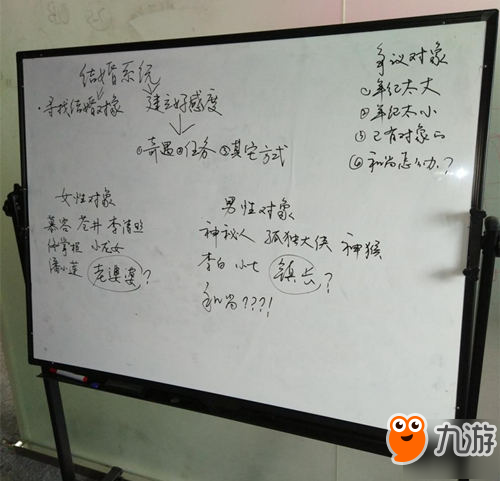 结婚系统
·寻找结婚对象 建立好感度
①奇遇②任务③其它方式
争议对象
①年纪太大
②年纪太小
③已有对象的
④和尚怎么办?
女性对象
慕容 苍井 李清照
佟掌柜 小龙女
潘小莲 老婆婆?
男性对象
神秘人 孤独大侠 神猴
李白 小七 镇长?
和尚???!
九游